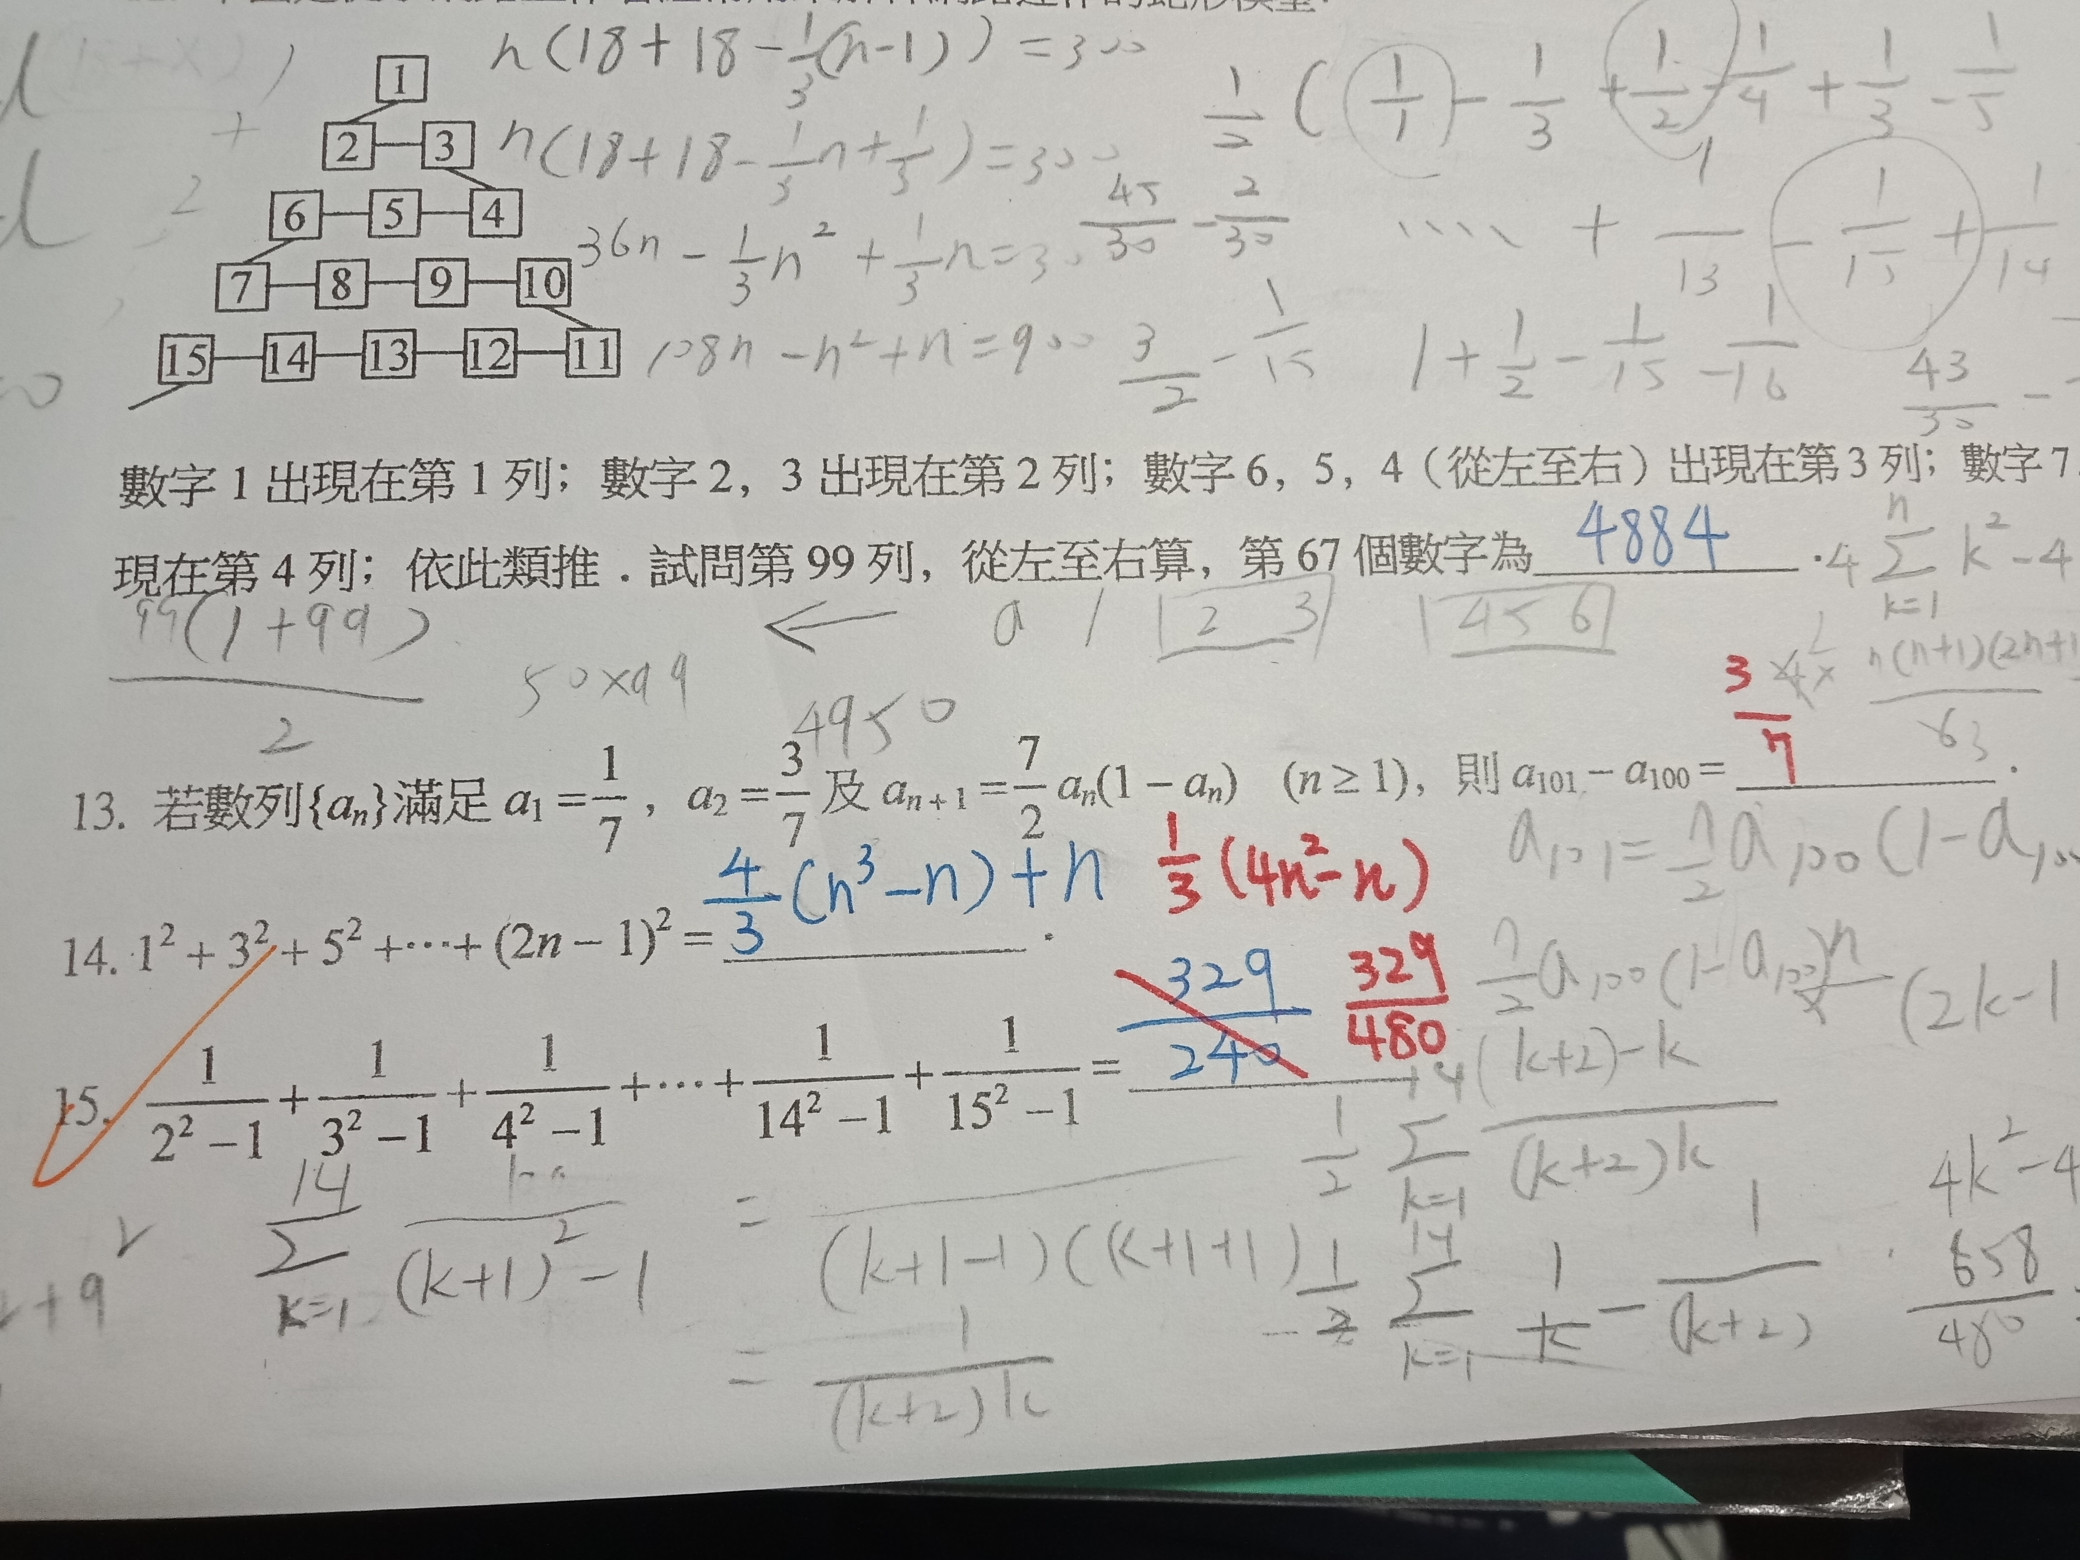 1
2 3
6 5 4
7 8 9 10
15 14 13 12 11
n(18+18-1/3(n-1))=300
n(18+18-1/3n+1/3)=300
36n-1/3n²+1/3n=30
108n-n²+n=900
1/2(1/1-1/3+1/2-1/4+1/3-1/5
45/30-2/30
....+1/13-1/15+1/14
3/2-1/15
1+1/2-1/15-1/16
43/30-
數字1出現在第1列；數字2，3出現在第2列；數字6，5，4（從左至右）出現在第3列；數字7
現在第4列；依此類推．試問第99列，從左至右算，第67個數字為 4884 .
4 Σ k²-4
n
k=1
99(1+99)/2
50×99
4950
← a 1 2 3 4 5 6
n(n+1)(2n+1
63
13. 若數列{aₙ}滿足 a₁=1/7，a₂=3/7 及 aₙ₊₁=7/2 aₙ(1-aₙ) (n≥1)，則 a₁₀₁-a₁₀₀= 3/7 .
a₁₀₁=7/2 a₁₀₀(1-a₁₀
14. 1²+3²+5²+⋯+(2n-1)²= 4/3(n³-n)+n .
1/3(4n²-n)
7/2 a₁₀₀(1-a₁₀₀)
(2k-1
15. 1/(2²-1)+1/(3²-1)+1/(4²-1)+⋯+1/(14²-1)+1/(15²-1)= 329/240
329/480
14 Σ k=1 /((k+1)²-1)
= /((k+1-1)(k+1+1))
= 1/((k+2)k)
1/2 14 Σ k=1 ((k+2)-k)/((k+2)k)
1/2 14 Σ k=1 1/k-1/(k+2)
4k²-4
658/480
+9²